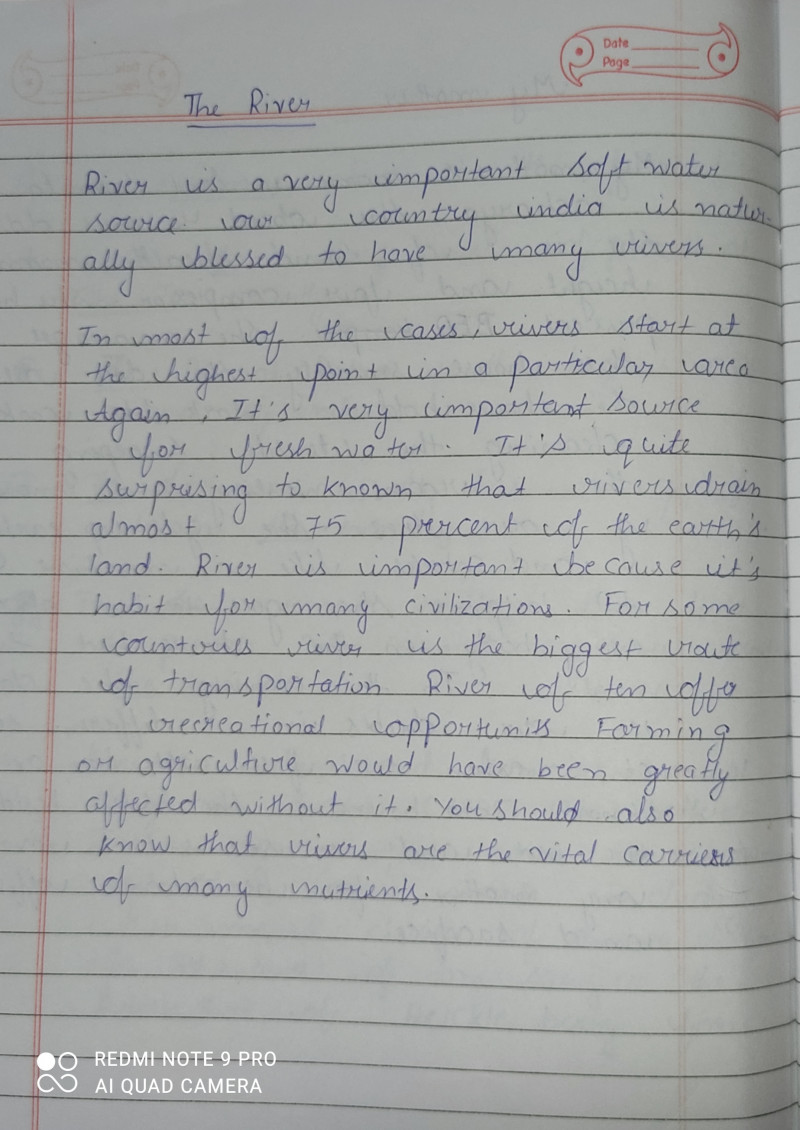 Date
Page
The River
River is a very important soft water
source. our country india is natur-
ally blessed to have many rivers.
In most of the cases, rivers start at
the highest point in a particular area
Again, It's very important source
for fresh water. It's quite
surprising to known that rivers drain
almost 75 percent of the earth's
land. River is important because it's
habit for many civilizations. For some
countries river is the biggest route
of transportation River of ten offer
recreational opportunits Farming
or agriculture would have been greatly
affected without it. You should also
know that rivers are the vital carriers
of many nutrients.
REDMI NOTE 9 PRO
AI QUAD CAMERA